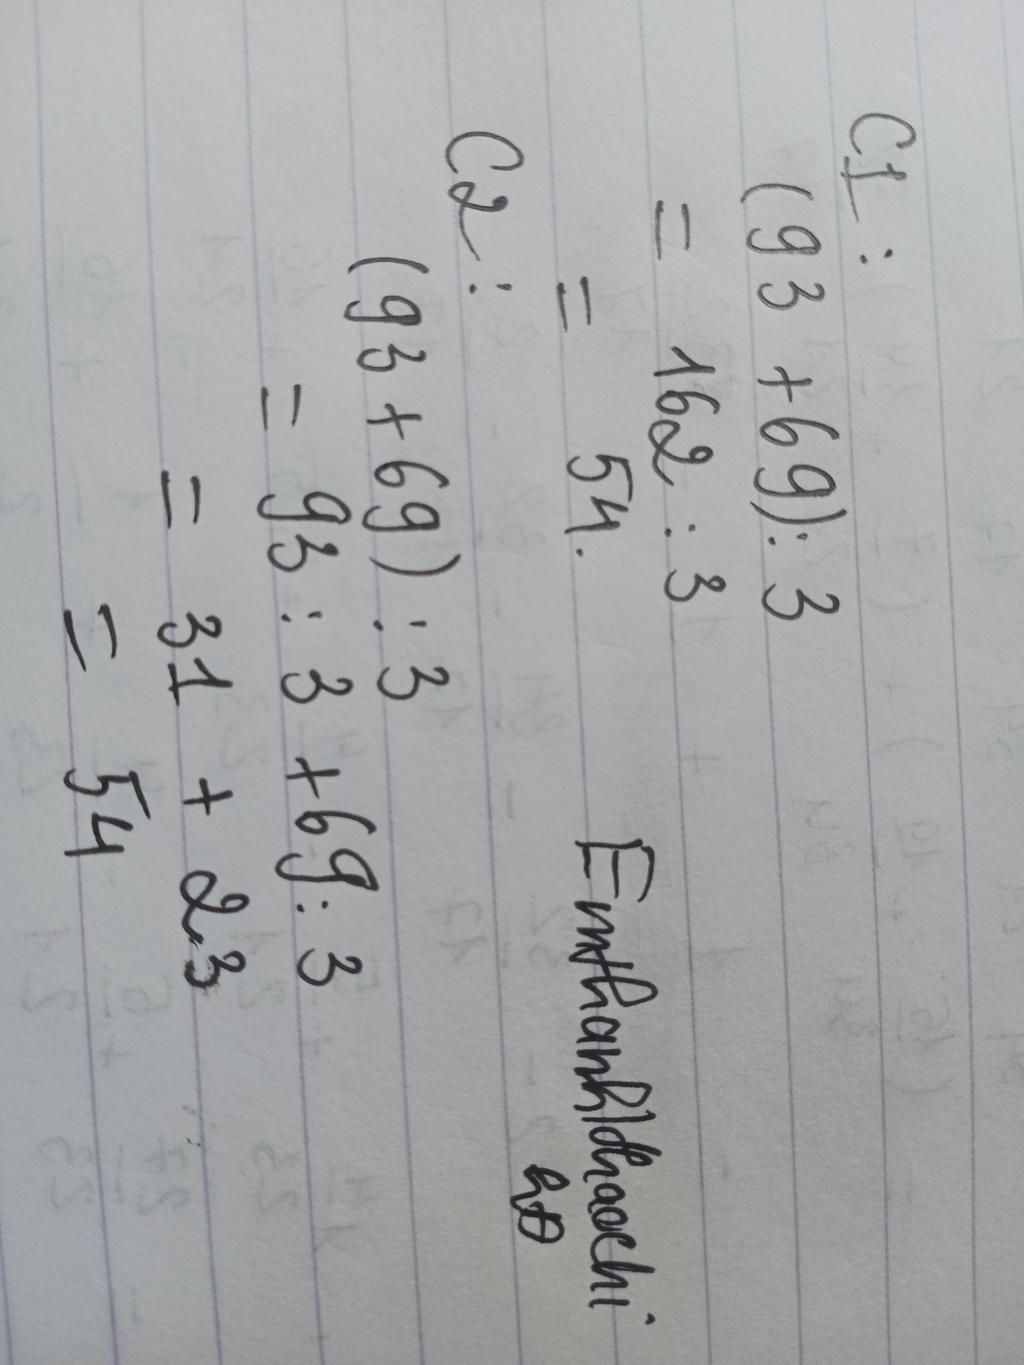 C1:
(93 + 69) : 3
= 162 : 3
= 54.
C2:
(93 + 69) : 3
= 93 : 3 + 69 : 3
= 31 + 23
= 54